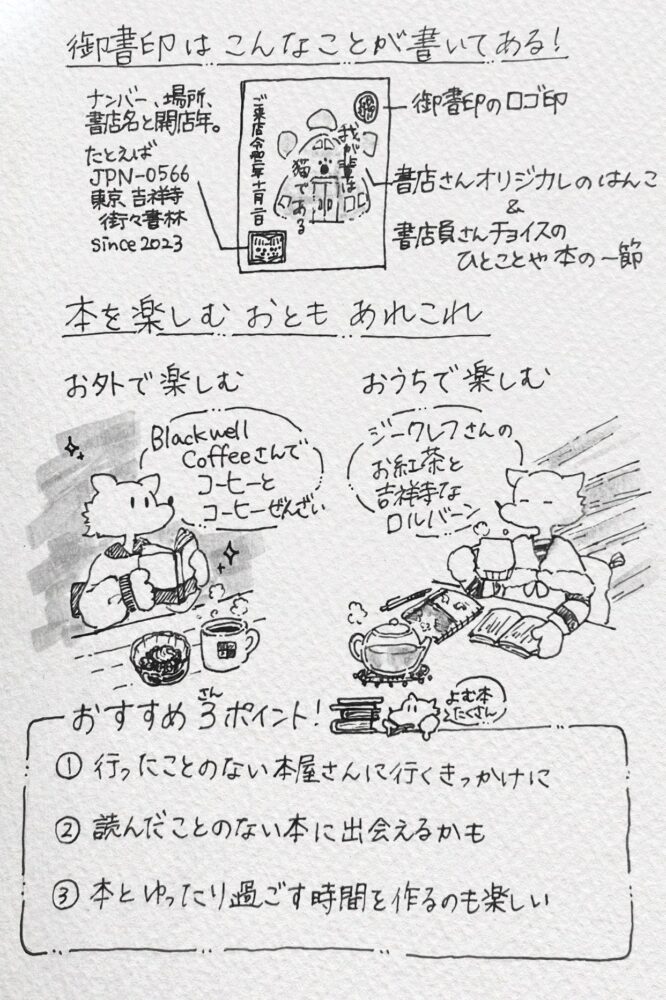 御書印はこんなことが書いてある!
ナンバー、場所、
書店名と開店年。
たとえば
JPN-0566
東京 吉祥寺
街々書林
since 2023
ご来店令和二年十一月二日
我が輩は
猫である
御書印のロゴ印
書店さんオリジナルのはんこ
&
書店員さんチョイスの
ひとことや本の一節
本を楽しむ おとも あれこれ
お外で楽しむ
Blackwell
Coffeeさんで
コーヒーと
コーヒーぜんざい
おうちで楽しむ
ジークレフさんの
お紅茶と
吉祥寺な
ロルバーン
おすすめ3ポイント!
さん
よむ本
たくさん
① 行ったことのない本屋さんに行くきっかけに
② 読んだことのない本に出会えるかも
③ 本とゆったり過ごす時間を作るのも楽しい